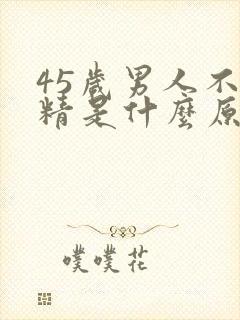 45歲男人不
精是什麼原
噗噗花